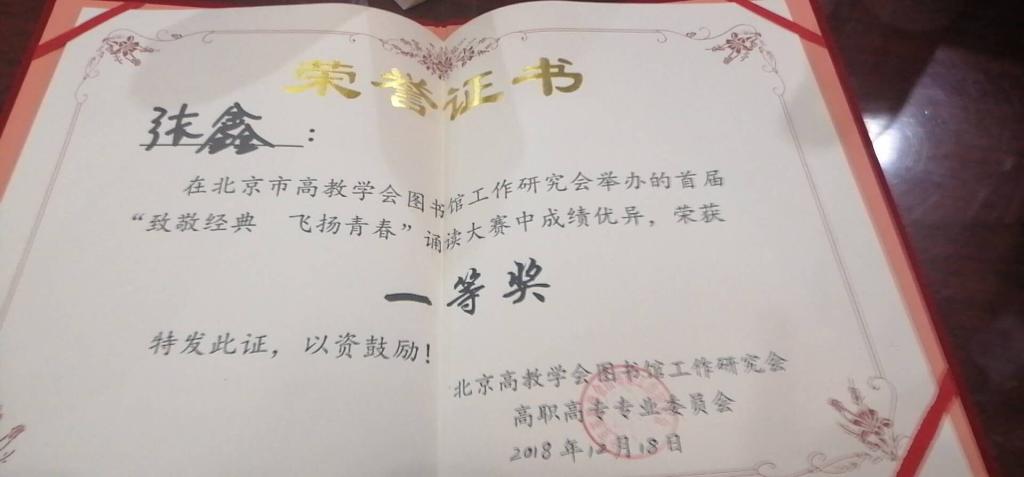 荣誉证书
张鑫：
在北京市高教学会图书馆工作研究会举办的首届
“致敬经典 飞扬青春”诵读大赛中成绩优异，荣获
一等奖
特发此证，以资鼓励！
北京高教学会图书馆工作研究会
高职高专专业委员会
2018年12月18日